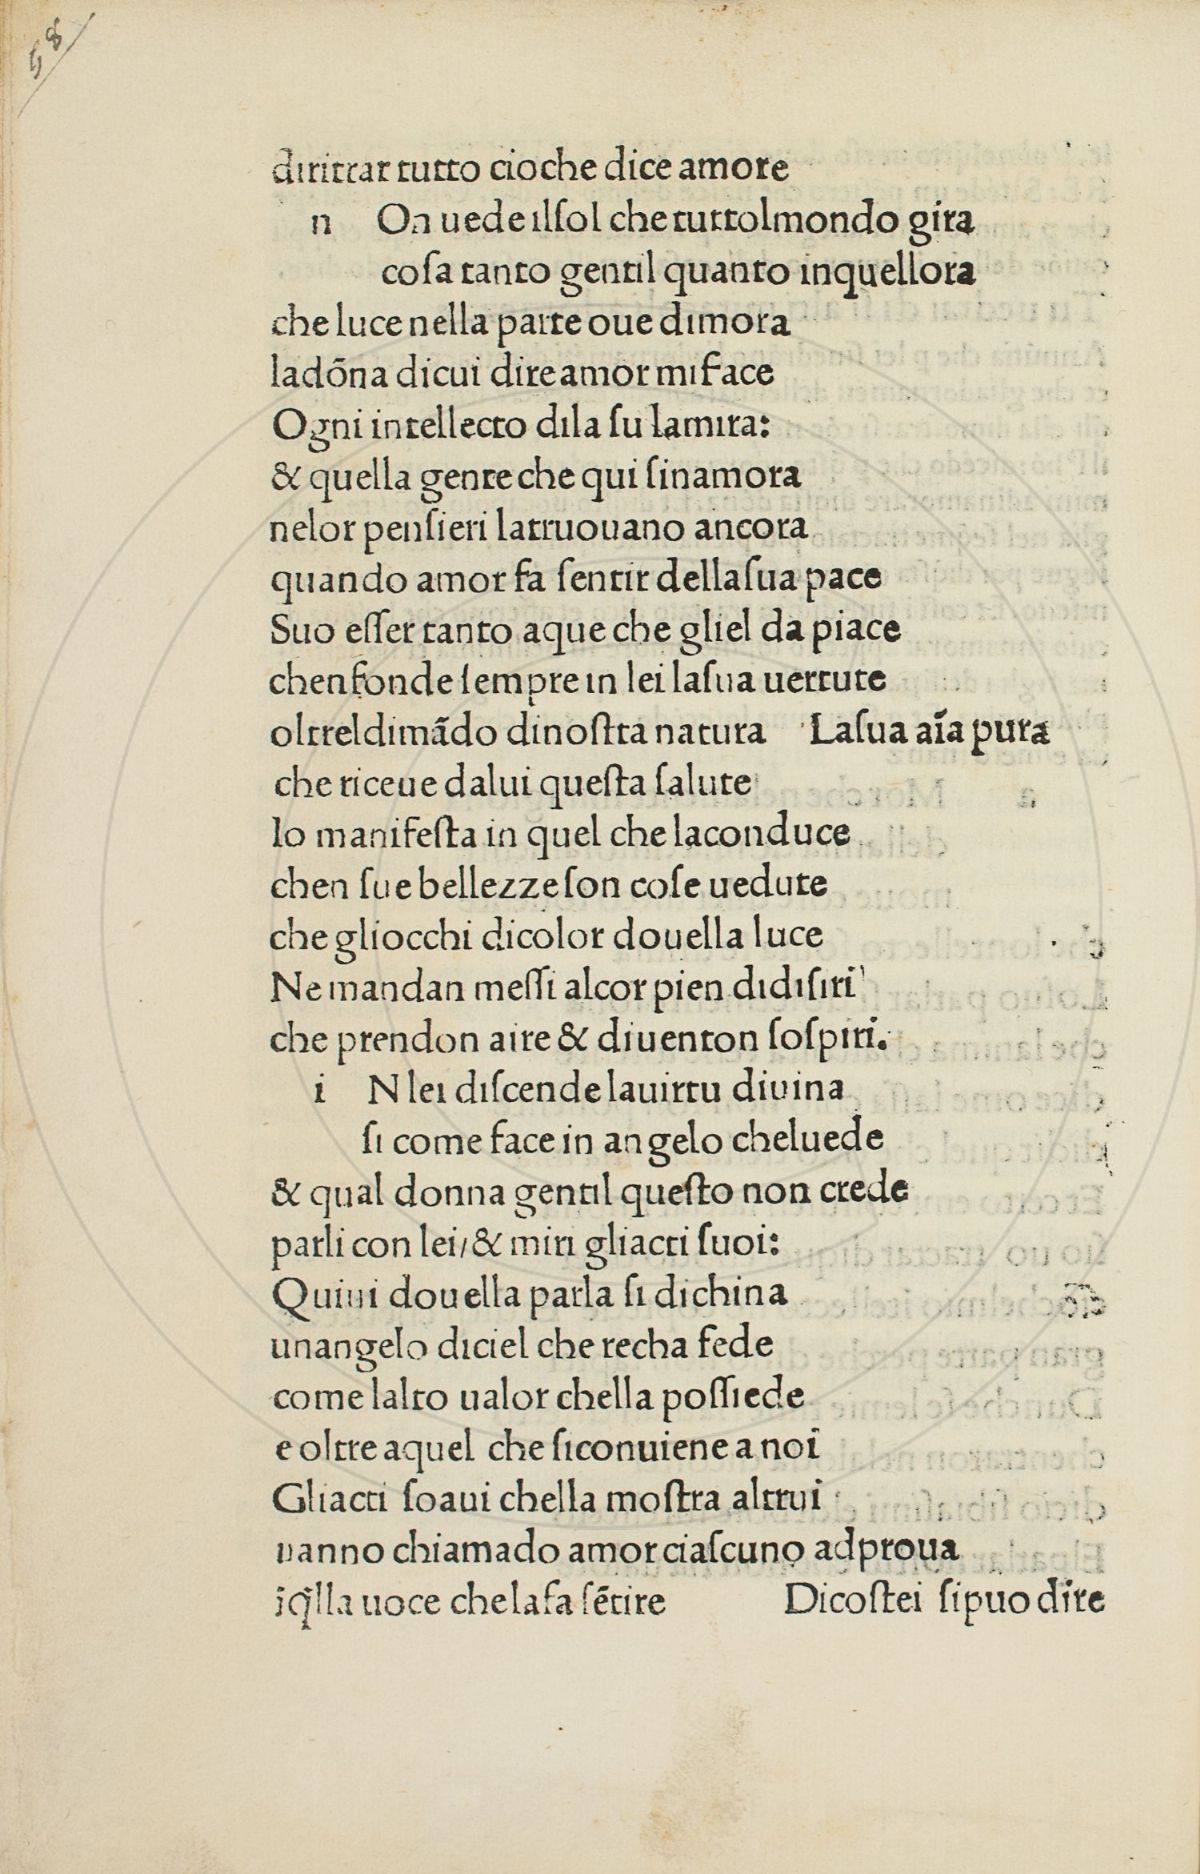 58
dirittar tutto cioche dice amore
n On uede ilſol che tuttolmondo gira
coſa tanto gentil quanto inquellora
che luce nella parte oue dimora
ladõna dicui dire amor miface
Ogni intellecto dila ſu lamira:
& quella gente che qui ſinamora
nelor penſieri latruouano ancora
quando amor fa ſentir dellaſua pace
Suo eſſer tanto aque che gliel da piace
chenfonde ſempre in lei laſua uertute
oltreldimãdo dinoſtra natura Laſua aĩa pura
che riceue dalui queſta ſalute
lo manifeſta in quel che laconduce
chen ſue bellezze ſon coſe uedute
che gliocchi dicolor douella luce
Ne mandan meſſi alcor pien didiſiri
che prendon aire & diuenton ſoſpiri.
i N lei diſcende lauirtu diuina
ſi come face in angelo cheluede
& qual donna gentil queſto non crede
parli con lei/& miri gliacti ſuoi:
Quiui douella parla ſi dichina
unangelo diciel che recha fede
come lalto ualor chella poſſiede
e oltre aquel che ſiconuiene a noi
Gliacti ſoaui chella moſtra altrui
uanno chiamado amor ciaſcuno adproua
ĩq̃lla uoce chelafa ſẽtire Dicoſtei ſipuo dire